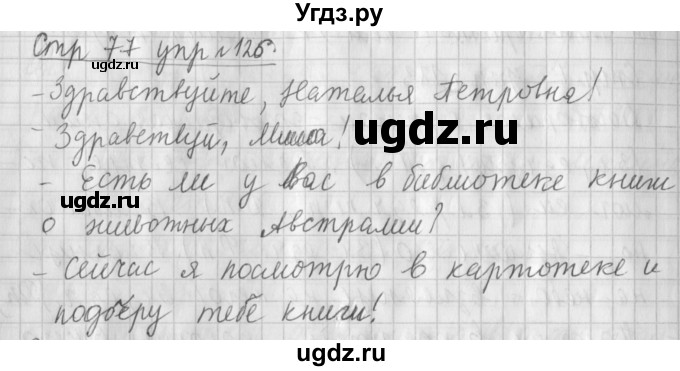 Угдз.ру
Стр 77 упр №126.
ugdz.ru
- Здравствуйте, Наталья Петровна!
- Здравствуй, Миша!
ugdz.ru
- Есть ли у Вас в библиотеке книги
ugdz.ru
о животных Австралии?
- Сейчас я посмотрю в картотеке и
подберу тебе книги!
ugdz.ru
ugdz.ru